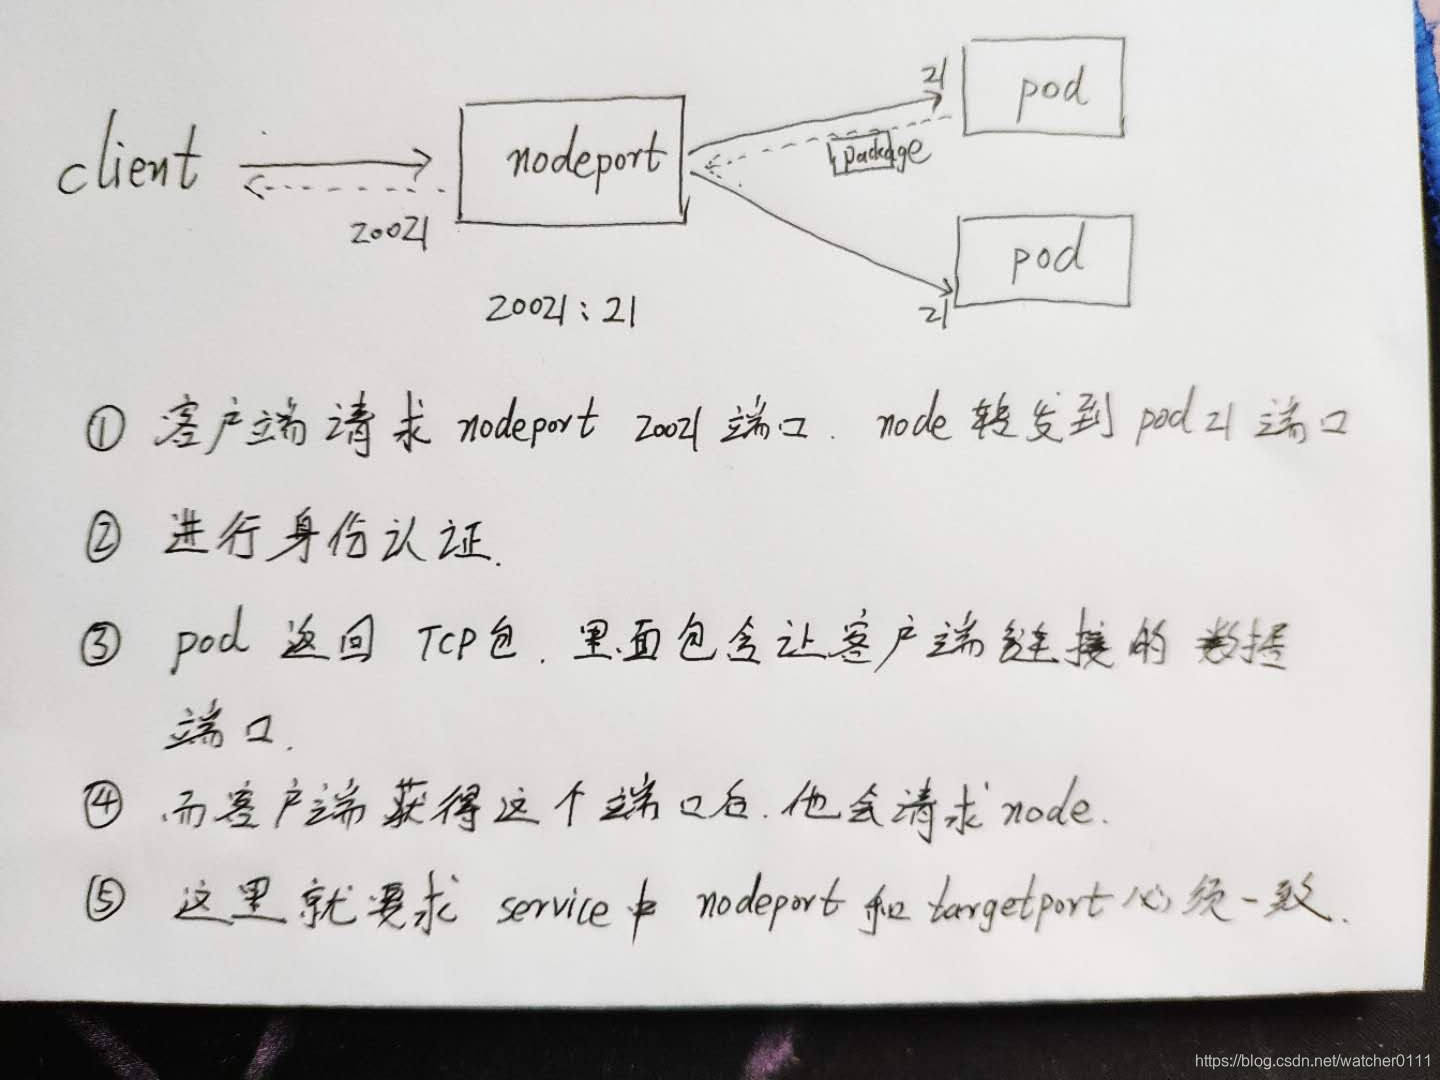 client
nodeport
20021
20021:21
21
pod
package
pod
21
① 客户端请求 nodeport 20021 端口. node 转发到 pod 21 端口
② 进行身份认证.
③ pod 返回 TCP包. 里面包含让客户端链接的 数据
端口.
④ 而客户端获得这个端口后. 他会请求 node.
⑤ 这里就要求 service中 nodeport 和 targetport 必须一致.
https://blog.csdn.net/watcher0111